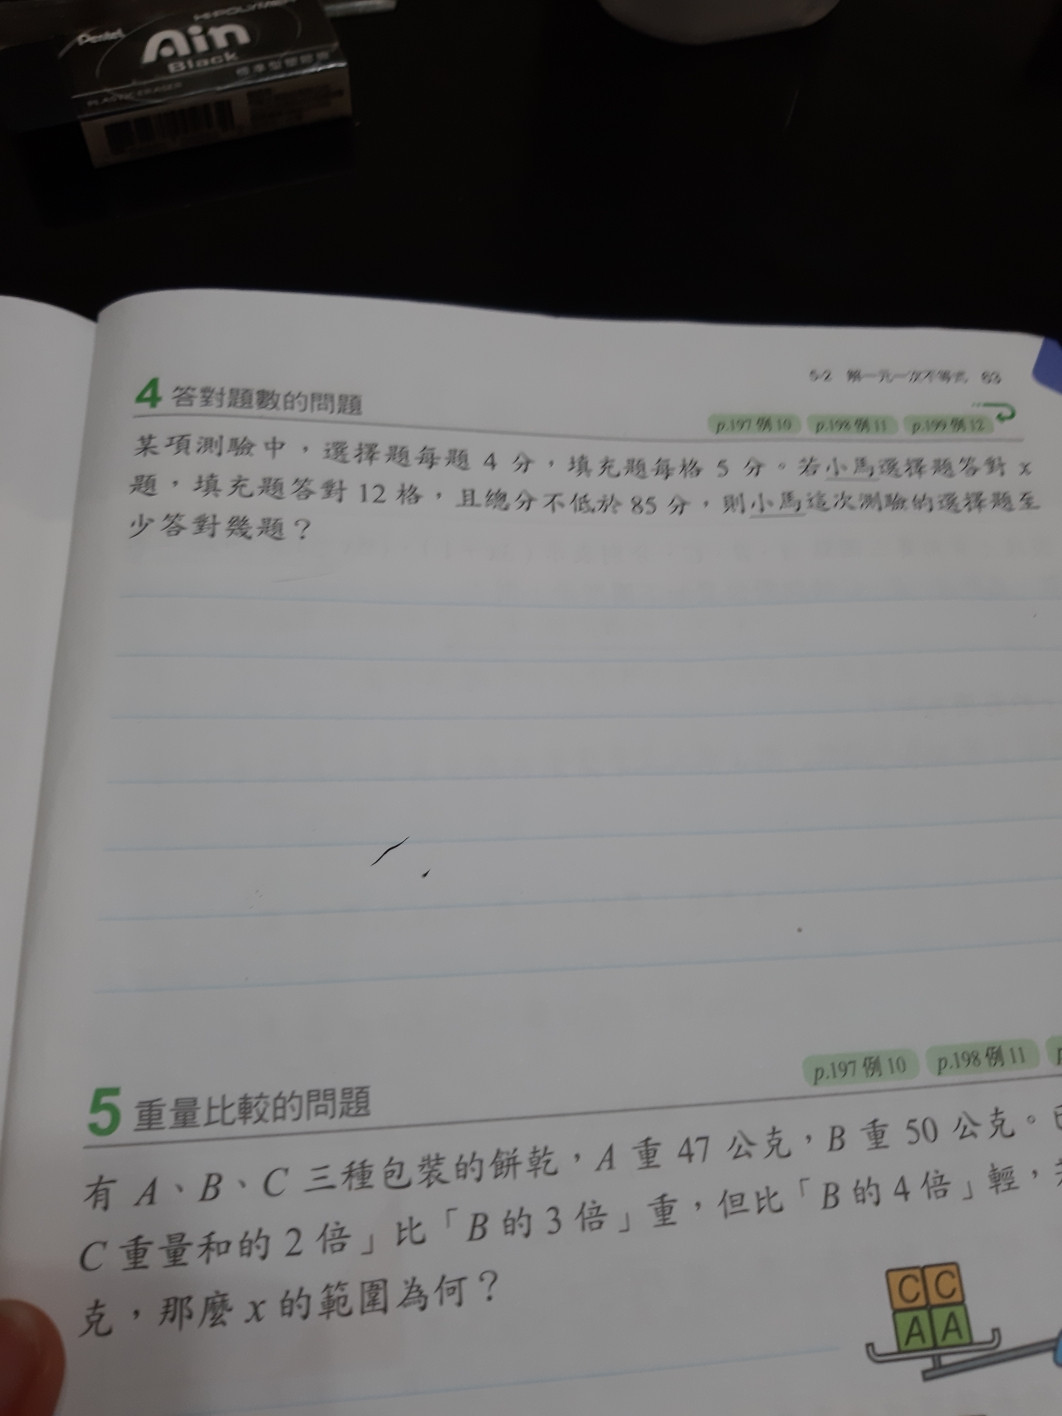 Pentel
HI-POLYMER
Ain
Black
PLASTIC ERASER
5-2 解一元一次不等式 63
4 答對題數的問題
p.197 例 10 p.198 例 11 p.199 例 12
某項測驗中，選擇題每題 4 分，填充題每格 5 分。若小馬選擇題答對 x
題，填充題答對 12 格，且總分不低於 85 分，則小馬這次測驗的選擇題至
少答對幾題？
p.197 例 10 p.198 例 11
5 重量比較的問題
有 A、B、C 三種包裝的餅乾，A 重 47 公克，B 重 50 公克。
C 重量和的 2 倍」比「B 的 3 倍」重，但比「B 的 4 倍」輕，
克，那麼 x 的範圍為何？
C C
A A